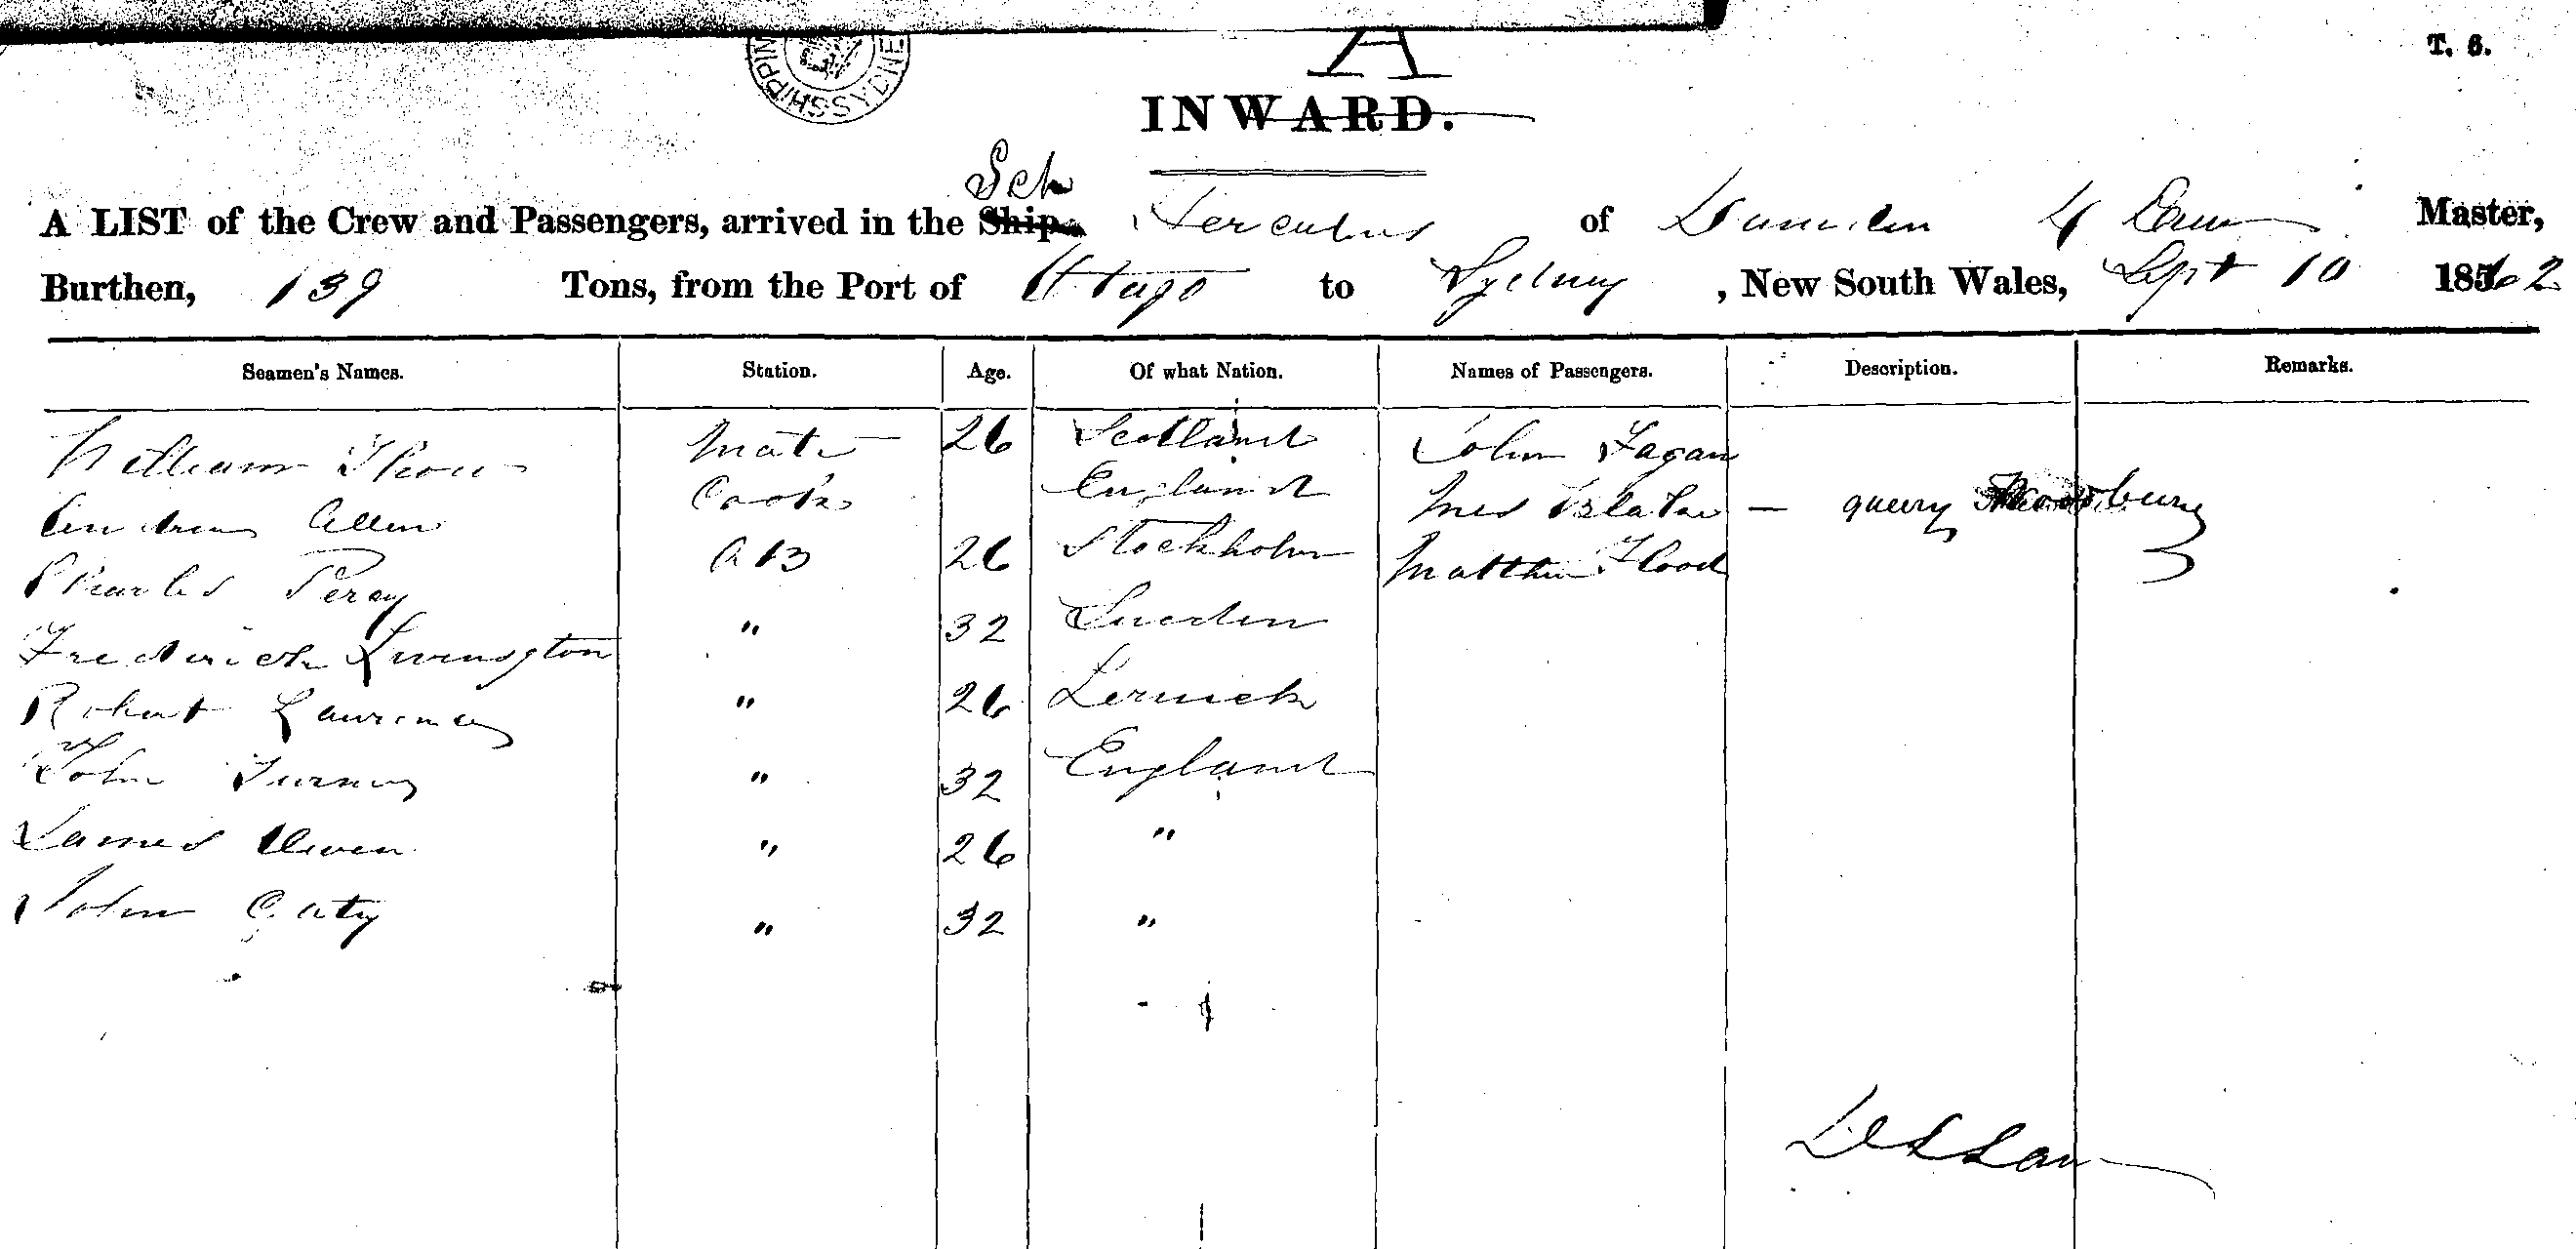 SHIPPIN SYDNE
A
T. 6.
INWARD.
Sch
A LIST of the Crew and Passengers, arrived in the Ship of Master,
Burthen, 139 Tons, from the Port of Otago to Sydney, New South Wales, Sept 10 1862
Seamen's Names. Station. Age. Of what Nation. Names of Passengers. Description. Remarks.
William Mate 26 Scotland John Fagan
Andrew Allen Cook England Mrs Blake — query
Charles Percy AB 26 Stockholm Matthew Flood
Frederick Livingston " 32 Sweden
Robert Laurence " 26 Lerwick
John Turner " 32 England
James Owen " 26 "
John Caty " 32 "